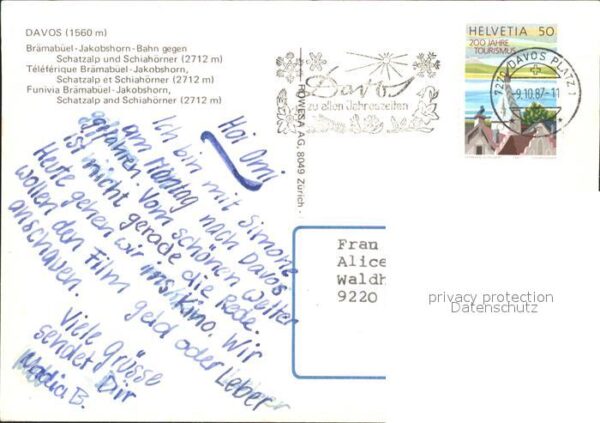 DAVOS (1560 m)
Brämabüel-Jakobshorn-Bahn gegen
Schatzalp und Schiahörner (2712 m)
Téléférique Brämabuel-Jakobshorn,
Schatzalp et Schiahörner (2712 m)
Funivia Brämabüel-Jakobshorn,
Schatzalp and Schiahörner (2712 m)
HELVETIA 50
200 JAHRE
TOURISMUS
Davos
zu allen Jahreszeiten
7270 DAVOS PLATZ 1
-9.10.87-11
ROWESA AG, 8049 Zürich
Hoi Omi
Ich bin mit Simone
am Montag nach Davos
gefahren. Vom schönen Wetter
ist nicht gerade die Rede.
Heute gehen wir ins Kino. Wir
wollen den Film geld oder Leber
anschauen.
Viele grüsse
sendet Dir
Nadia B.
Frau
Alice
Waldh
9220
privacy protection
Datenschutz